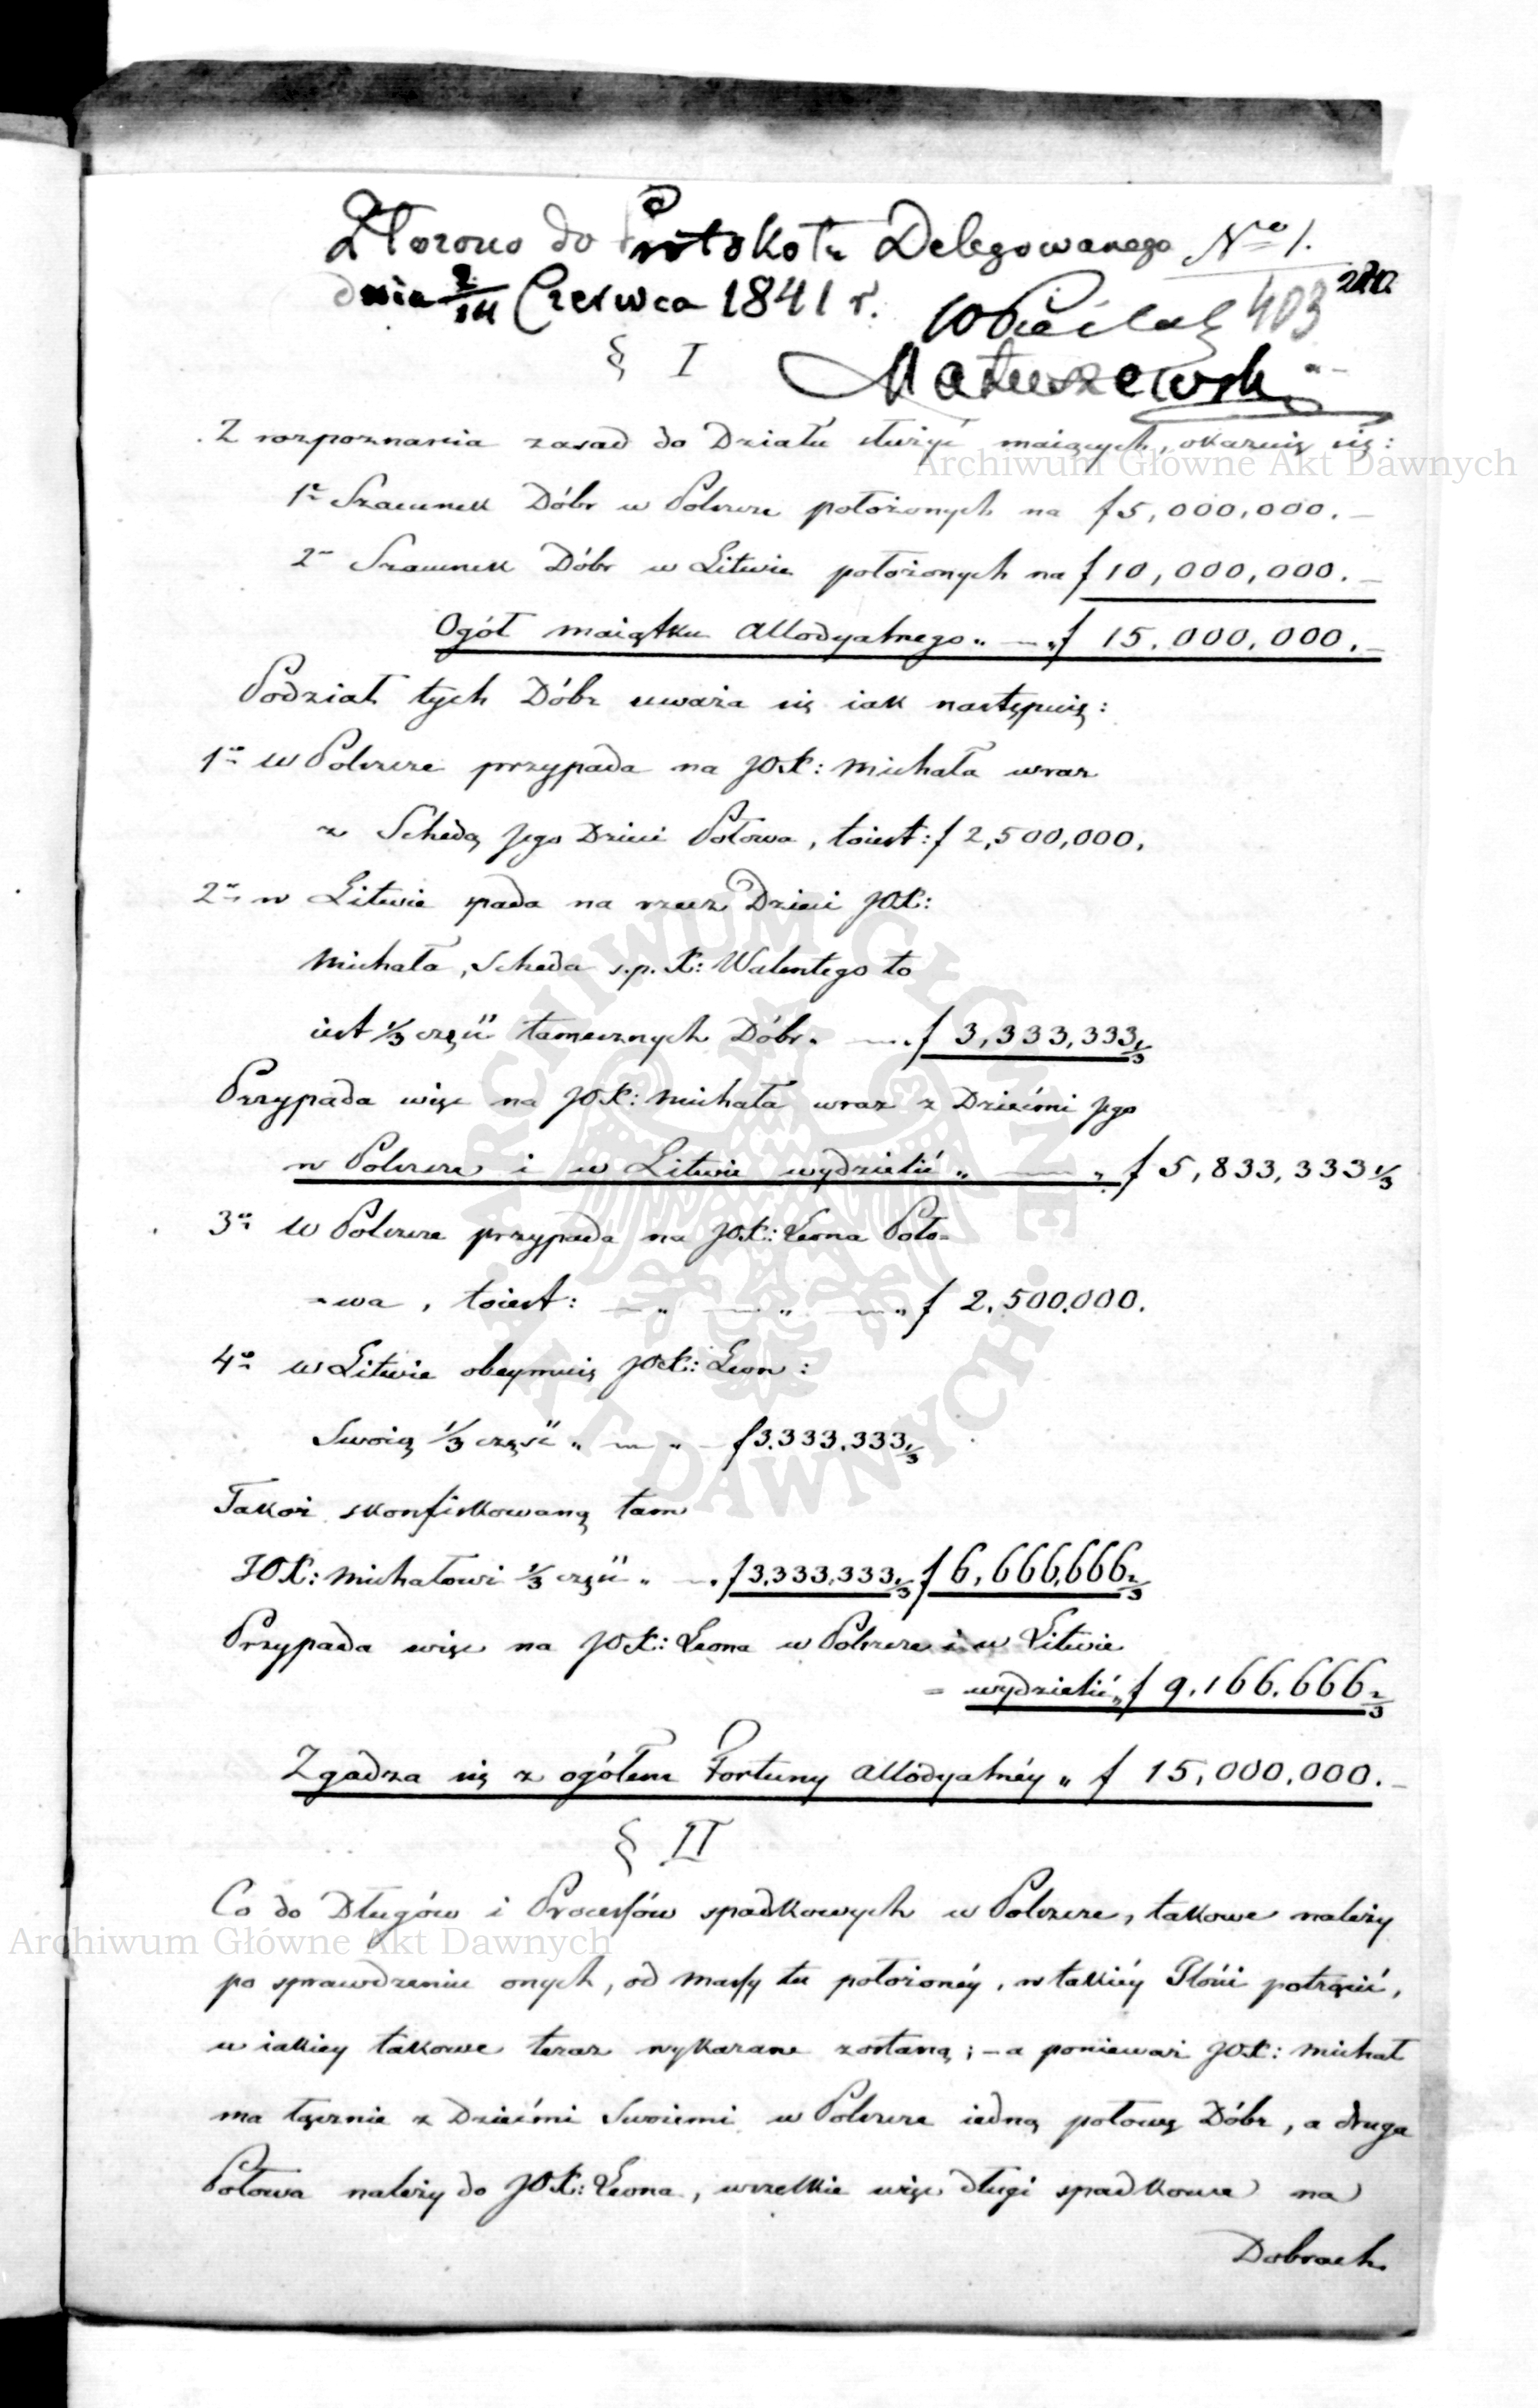 Złożono do Protokołu Delegowanego No 1.
dnia 2/14 Czerwca 1841 r. 403 280
Matuszewski
§ I
Z rozpoznania zasad do Działu służyć maiących, okazuię się:
1o Szacunek Dóbr w Polszcze położonych na f 5,000,000.—
2o Szacunek Dóbr w Litwie położonych na f 10,000,000.—
Ogół maiątku Allodyalnego „ — „ f 15,000,000.—
Podział tych Dóbr uważa się iak następuię:
1o w Polszcze przypada na JOX: Michała wraz
z Schedą Jego Dzieci Połowa, toiest: f 2,500,000,
2o w Litwie spada na rzecz Dzieci JOX:
Michała, Scheda s.p. X: Walentego to
iest 1/3 częśi tamecznych Dóbr. — . f 3,333,333 1/3
Przypada więc na JOX: Michała wraz z Dziećmi Jego
w Polszcze i w Litwie wydzielić „ — „ f 5,833,333 1/3
3o W Polszcze przypada na JOX: Leona Poło=
=wa, toiest: — „ — „ — „ f 2,500,000.
4o w Litwie obeymuię JOX: Leon:
Swoią 1/3 część „ — „ — f 3.333.333 1/3
Takoż skonfiskowaną tam
JOX: Michałowi 1/3 częśi „ — . f 3,333,333 1/3 f 6,666,666 2/3
Przypada więc na JOX: Leona w Polszcze i w Litwie
= wydzielić „ f 9.166.666 2/3
Zgadza się z ogółem Fortuny Allodyalnéy „ f 15,000,000.—
§ II
Co do Długów i Processów spadkowych w Polszcze, takowe należy
po sprawdzeniu onych, od massy tu położonéy, w takiéy Ilości potrącić,
w iakiey takowe teraz wykazane zostaną; – a ponieważ JOX: Michał
ma łącznie z Dziećmi Swoiemi w Polszcze iedną połowę Dóbr, a druga
Połowa należy do JOX: Leona, wszelkie więc długi spadkowe na
Dobrach
Archiwum Główne Akt Dawnych
Archiwum Główne Akt Dawnych
ARCHIWUM GŁÓWNE
AKT DAWNYCH